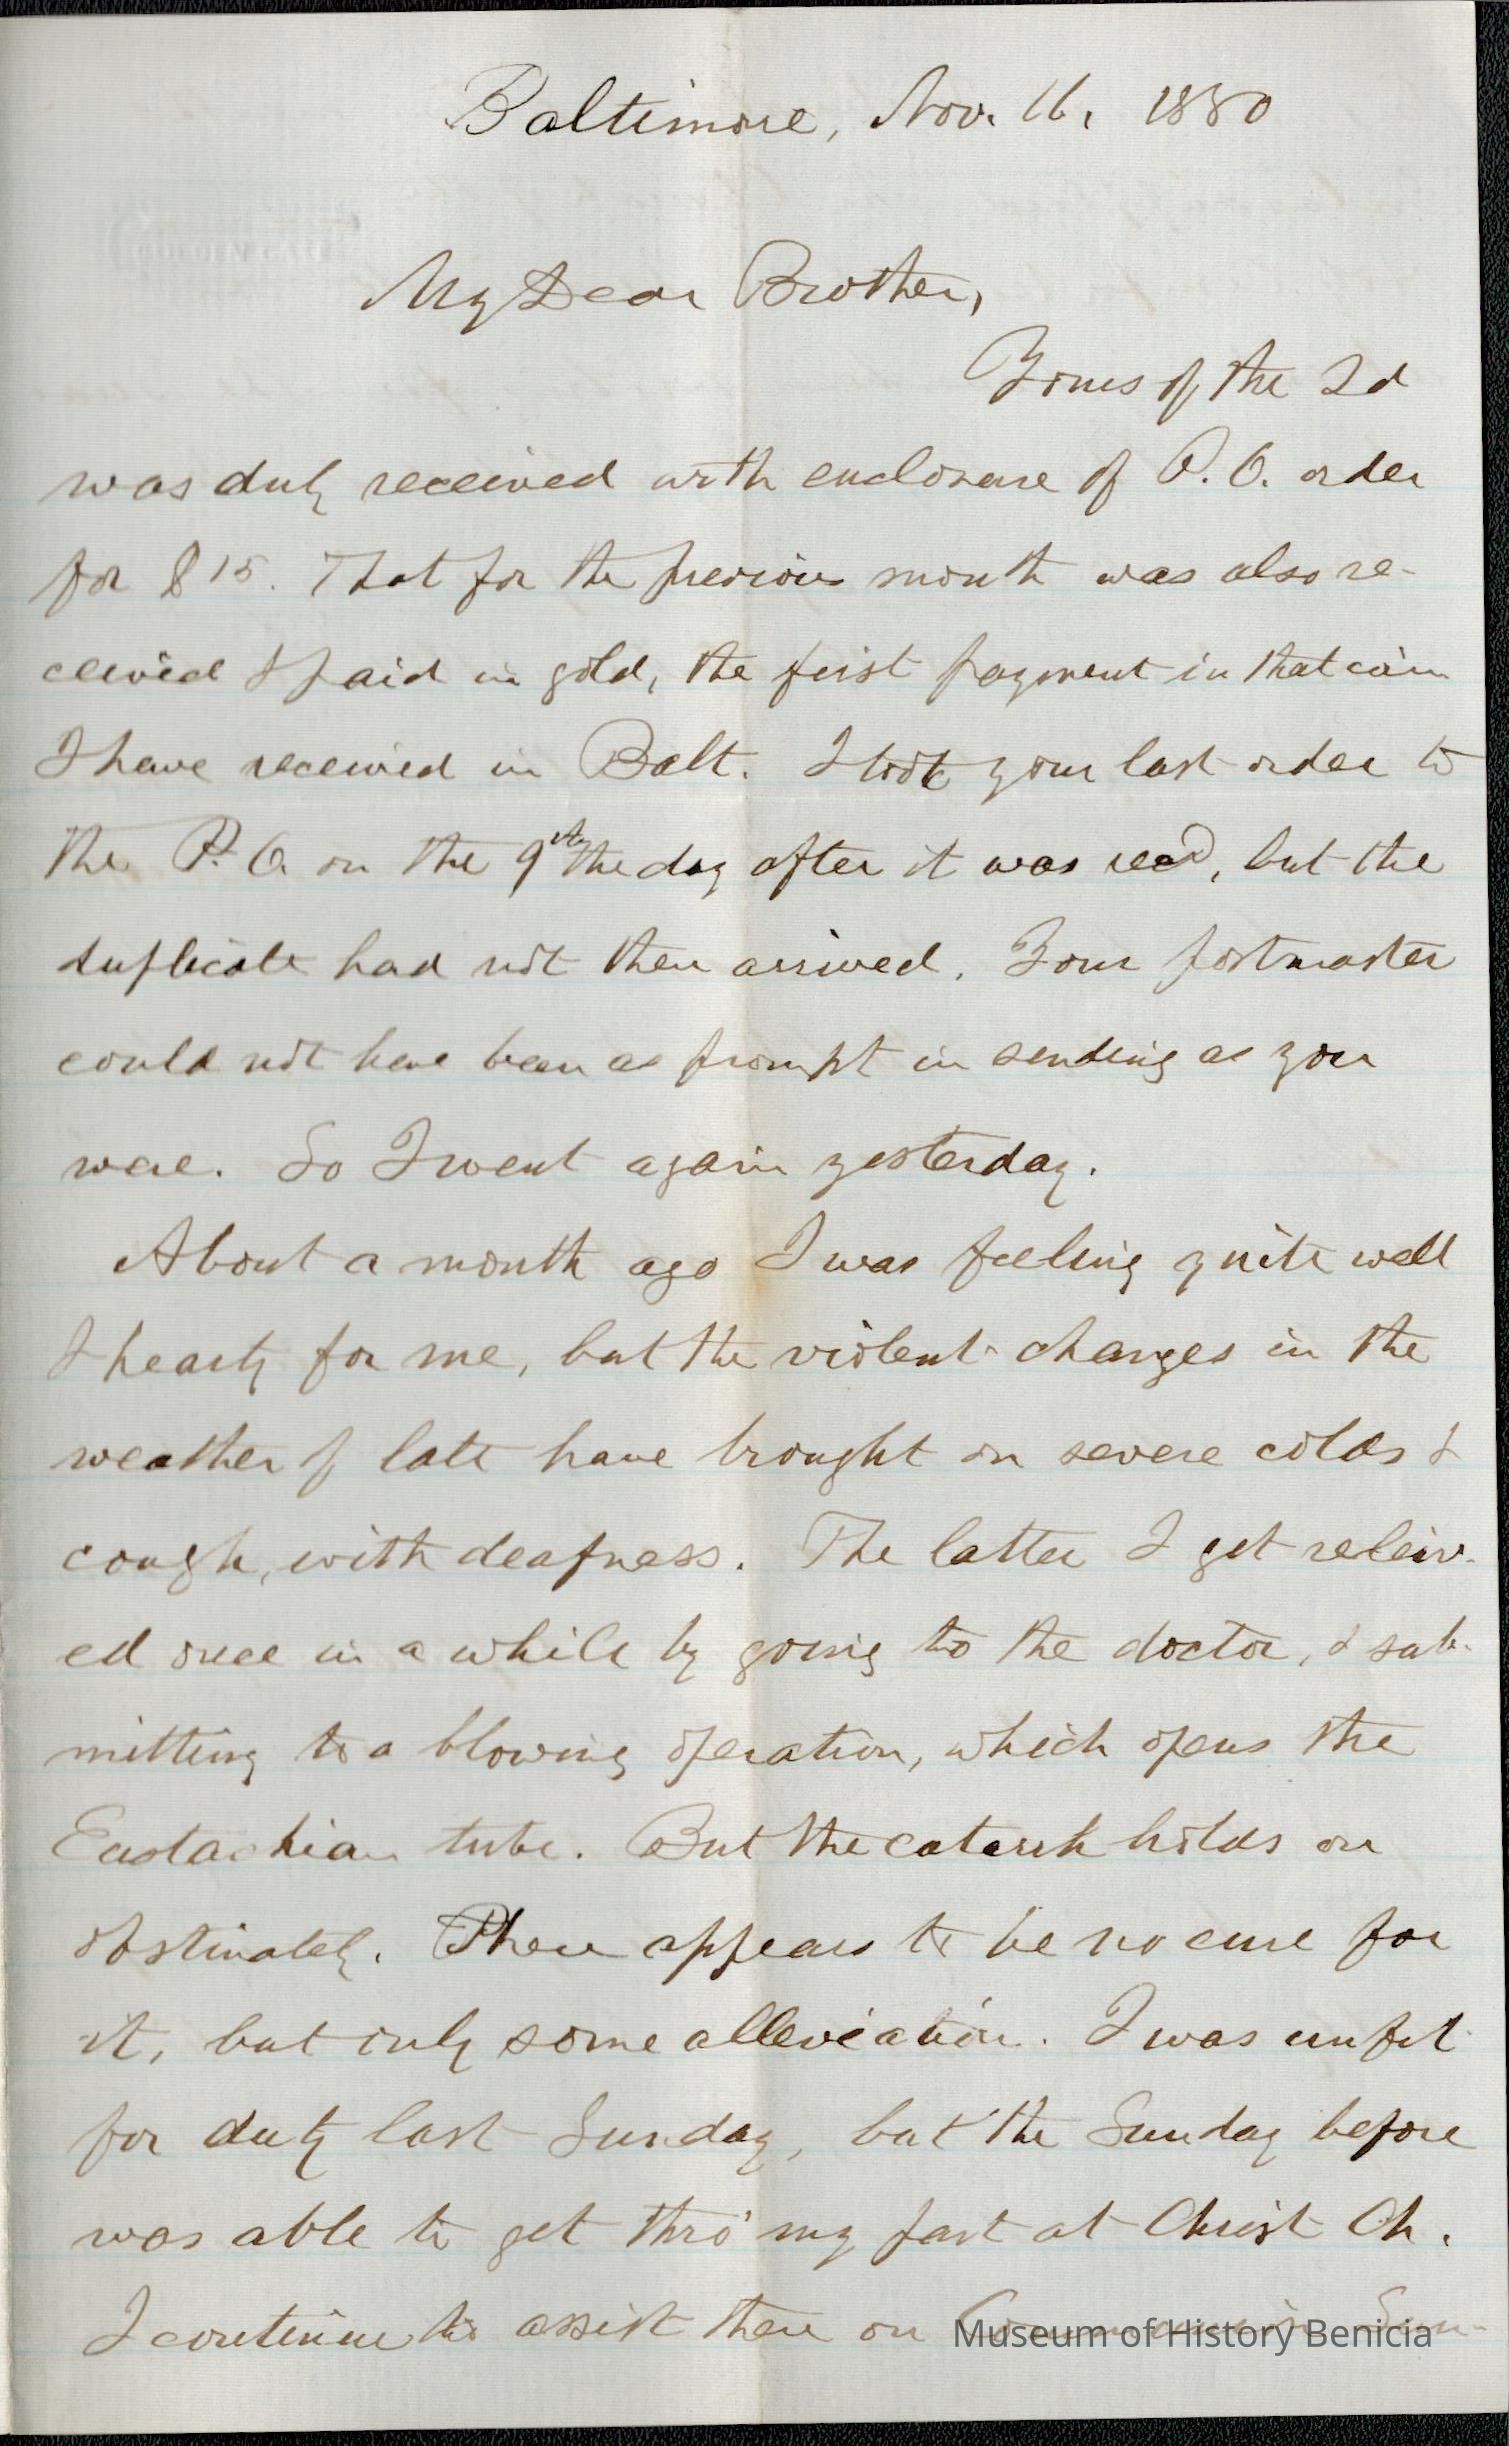 Baltimore, Nov. 16, 1880
My Dear Brother,
Yours of the 2d
was duly received with enclosure of P. O. order
for $15. That for the previous month was also re-
ceived & paid in gold, the first payment in that coin
I have received in Balt. I took your last order to
the P. O. on the 9th the day after it was recd, but the
duplicate had not then arrived. Your postmaster
could not have been as prompt in sending as you
were. So I went again yesterday.
About a month ago I was feeling quite well
& hearty for me, but the violent changes in the
weather of late have brought on severe colds &
cough, with deafness. The latter I get releiv-
ed once in a while by going to the doctor, & sub-
mitting to a blowing operation, which opens the
Eustachian tube. But the catarrh holds on
obstinately. There appears to be no cure for
it, but only some alleviation. I was unfit
for duty last Sunday, but the Sunday before
was able to get thro' my part at Christ Ch.
I continue to assist there on Communion Sun-
Museum of History Benicia